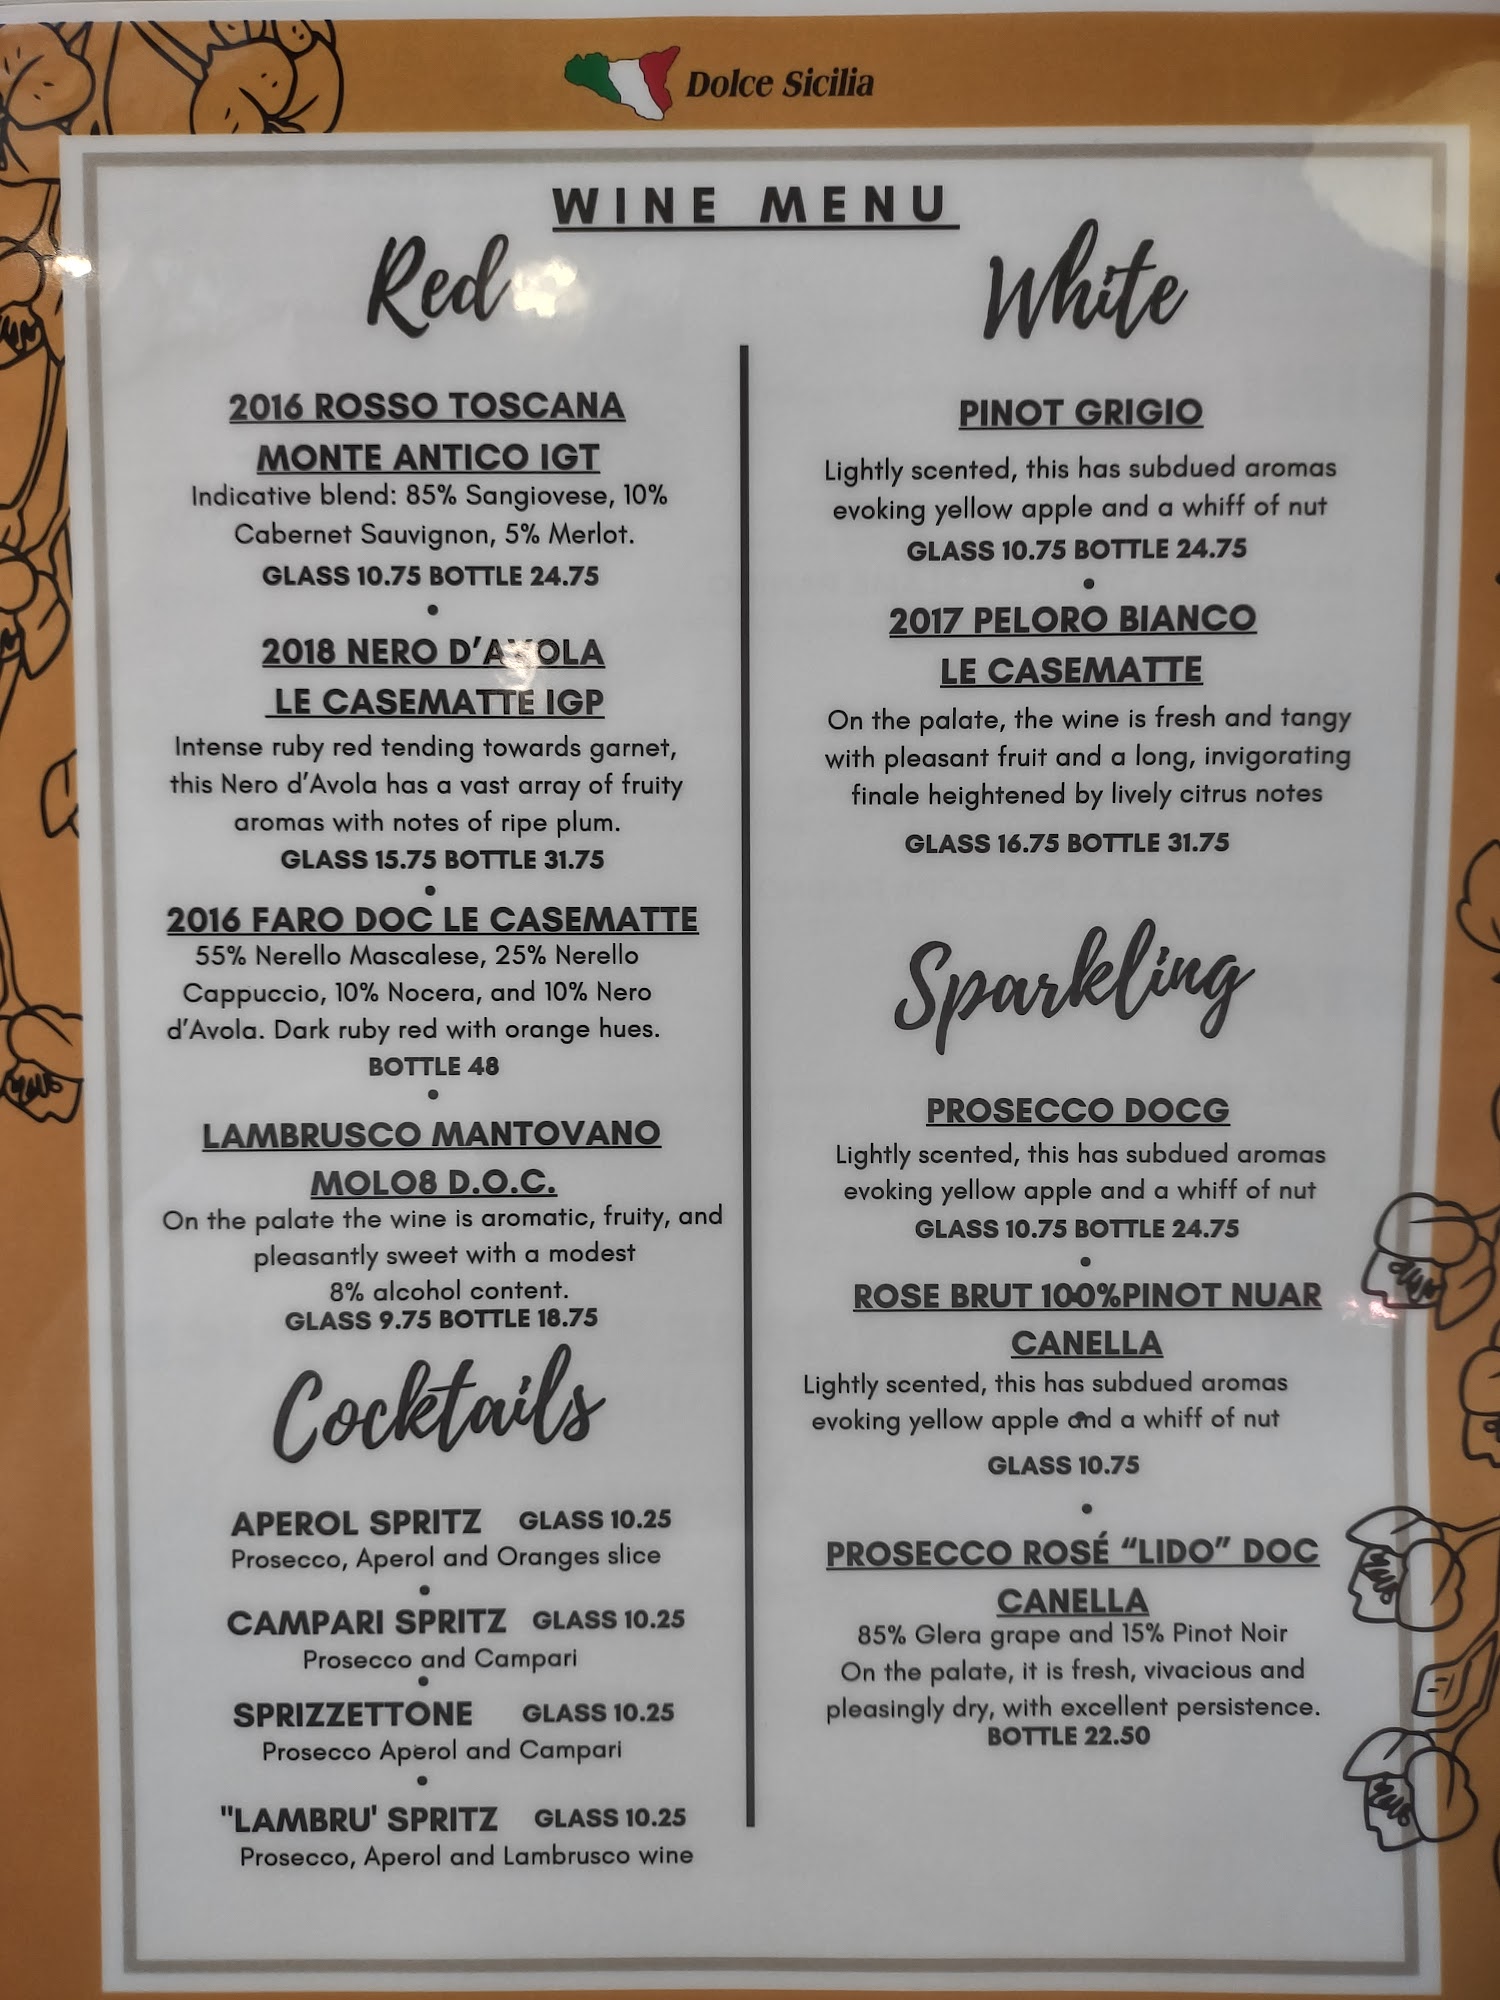 Dolce Sicilia
WINE MENU
Red
2016 ROSSO TOSCANA
MONTE ANTICO IGT
Indicative blend: 85% Sangiovese, 10%
Cabernet Sauvignon, 5% Merlot.
GLASS 10.75 BOTTLE 24.75
•
2018 NERO D'AVOLA
LE CASEMATTE IGP
Intense ruby red tending towards garnet,
this Nero d'Avola has a vast array of fruity
aromas with notes of ripe plum.
GLASS 15.75 BOTTLE 31.75
•
2016 FARO DOC LE CASEMATTE
55% Nerello Mascalese, 25% Nerello
Cappuccio, 10% Nocera, and 10% Nero
d'Avola. Dark ruby red with orange hues.
BOTTLE 48
•
LAMBRUSCO MANTOVANO
MOLO8 D.O.C.
On the palate the wine is aromatic, fruity, and
pleasantly sweet with a modest
8% alcohol content.
GLASS 9.75 BOTTLE 18.75
Cocktails
APEROL SPRITZ GLASS 10.25
Prosecco, Aperol and Oranges slice
•
CAMPARI SPRITZ GLASS 10.25
Prosecco and Campari
•
SPRIZZETTONE GLASS 10.25
Prosecco Aperol and Campari
•
"LAMBRU' SPRITZ GLASS 10.25
Prosecco, Aperol and Lambrusco wine
White
PINOT GRIGIO
Lightly scented, this has subdued aromas
evoking yellow apple and a whiff of nut
GLASS 10.75 BOTTLE 24.75
•
2017 PELORO BIANCO
LE CASEMATTE
On the palate, the wine is fresh and tangy
with pleasant fruit and a long, invigorating
finale heightened by lively citrus notes
GLASS 16.75 BOTTLE 31.75
Sparkling
PROSECCO DOCG
Lightly scented, this has subdued aromas
evoking yellow apple and a whiff of nut
GLASS 10.75 BOTTLE 24.75
•
ROSE BRUT 100%PINOT NUAR
CANELLA
Lightly scented, this has subdued aromas
evoking yellow apple and a whiff of nut
GLASS 10.75
•
PROSECCO ROSÉ “LIDO” DOC
CANELLA
85% Glera grape and 15% Pinot Noir
On the palate, it is fresh, vivacious and
pleasingly dry, with excellent persistence.
BOTTLE 22.50